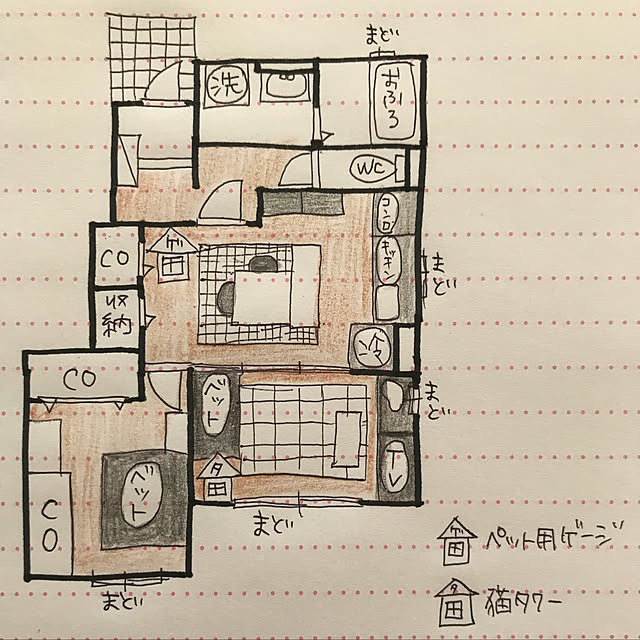 まどい
洗
おふろ
WC
コンロ
キッチン
まどい
ゲ
CO
収納
冷
CO
ベット
まどい
タ
TV
CO
ベット
まどい
まどい
ゲ ペット用ゲージ
タ 猫タワー